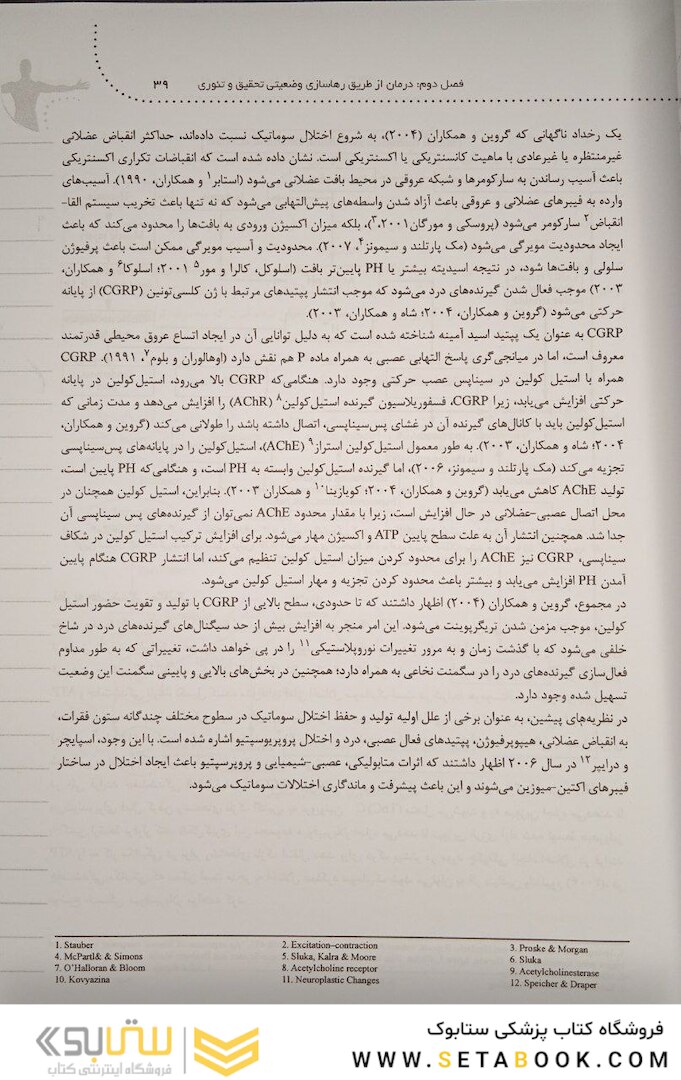 فصل دوم: درمان از طریق رهاسازی وضعیتی تحقیق و تئوری ۳۹
یک رخداد ناگهانی که گروین و همکاران (۲۰۰۴)، به شروع اختلال سوماتیک نسبت داده‌اند، حداکثر انقباض عضلانی
غیرمنتظره یا غیرعادی با ماهیت کانسنتریکی یا اکسنتریکی است. نشان داده شده است که انقباضات تکراری اکسنتریکی
باعث آسیب رساندن به سارکومرها و شبکه عروقی در محیط بافت عضلانی می‌شود (استابر۱ و همکاران، ۱۹۹۰). آسیب‌های
وارده به فیبرهای عضلانی و عروقی باعث آزاد شدن واسطه‌های پیش‌التهابی می‌شود که نه تنها باعث تخریب سیستم القا-
انقباض۲ سارکومر می‌شود (پروسکی و مورگان۲۰۰۱،۳)، بلکه میزان اکسیژن ورودی به بافت‌ها را محدود می‌کند که باعث
ایجاد محدودیت مویرگی می‌شود (مک پارتلند و سیمونز۴، ۲۰۰۷). محدودیت و آسیب مویرگی ممکن است باعث پرفیوژن
سلولی و بافت‌ها شود، در نتیجه اسیدیته بیشتر یا PH پایین‌تر بافت (اسلوکل، کالرا و مور۵ ۲۰۰۱؛ اسلوکا۶ و همکاران،
۲۰۰۳) موجب فعال شدن گیرنده‌های درد می‌شود که موجب انتشار پپتیدهای مرتبط با ژن کلسی‌تونین (CGRP) از پایانه
حرکتی می‌شود (گروین و همکاران، ۲۰۰۴؛ شاه و همکاران، ۲۰۰۳).
CGRP به عنوان یک پپتید اسید آمینه شناخته شده است که به دلیل توانایی آن در ایجاد اتساع عروق محیطی قدرتمند
معروف است، اما در میانجی‌گری پاسخ التهابی عصبی به همراه ماده P هم نقش دارد (اوهالوران و بلوم۷، ۱۹۹۱). CGRP
همراه با استیل کولین در سیناپس عصب حرکتی وجود دارد. هنگامی‌که CGRP بالا می‌رود، استیل‌کولین در پایانه
حرکتی افزایش می‌یابد، زیرا CGRP، فسفوریلاسیون گیرنده استیل‌کولین۸ (AChR) را افزایش می‌دهد و مدت زمانی که
استیل‌کولین باید با کانال‌های گیرنده آن در غشای پس‌سیناپسی، اتصال داشته باشد را طولانی می‌کند (گروین و همکاران،
۲۰۰۴؛ شاه و همکاران، ۲۰۰۳). به طور معمول استیل‌کولین استراز۹ (AChE)، استیل‌کولین را در پایانه‌های پس‌سیناپسی
تجزیه می‌کند (مک پارتلند و سیمونز، ۲۰۰۶)، اما گیرنده استیل‌کولین وابسته به PH است، و هنگامی‌که PH پایین است،
تولید AChE کاهش می‌یابد (گروین و همکاران، ۲۰۰۴؛ کویازینا۱۰ و همکاران ۲۰۰۳). بنابراین، استیل کولین همچنان در
محل اتصال عصبی-عضلانی در حال افزایش است، زیرا با مقدار محدود AChE نمی‌توان از گیرنده‌های پس سیناپسی آن
جدا شد. همچنین انتشار آن به علت سطح پایین ATP و اکسیژن مهار می‌شود. برای افزایش ترکیب استیل کولین در شکاف
سیناپسی، CGRP نیز AChE را برای محدود کردن میزان استیل کولین تنظیم می‌کند، اما انتشار CGRP هنگام پایین
آمدن PH افزایش می‌یابد و بیشتر باعث محدود کردن تجزیه و مهار استیل کولین می‌شود.
در مجموع، گروین و همکاران (۲۰۰۴) اظهار داشتند که تا حدودی، سطح بالایی از CGRP با تولید و تقویت حضور استیل
کولین، موجب مزمن شدن تریگرپوینت می‌شود. این امر منجر به افزایش بیش از حد سیگنال‌های گیرنده‌های درد در شاخ
خلفی می‌شود که با گذشت زمان و به مرور تغییرات نوروپلاستیکی۱۱ را در پی خواهد داشت، تغییراتی که به طور مداوم
فعال‌سازی گیرنده‌های درد را در سگمنت نخاعی به همراه دارد؛ همچنین در بخش‌های بالایی و پایینی سگمنت این وضعیت
تسهیل شده وجود دارد.
در نظریه‌های پیشین، به عنوان برخی از علل اولیه تولید و حفظ اختلال سوماتیک در سطوح مختلف چندگانه ستون فقرات،
به انقباض عضلانی، هیپوپرفیوژن، پپتیدهای فعال عصبی، درد و اختلال پروپریوسپتیو اشاره شده است. با این وجود، اسپایچر
و دراپیر۱۲ در سال ۲۰۰۶ اظهار داشتند که اثرات متابولیکی، عصبی-شیمیایی و پروپرسپتیو باعث ایجاد اختلال در ساختار
فیبرهای اکتین-میوزین می‌شوند و این باعث پیشرفت و ماندگاری اختلالات سوماتیک می‌شود.
1. Stauber 2. Excitation–contraction 3. Proske & Morgan
4. McPartl& & Simons 5. Sluka, Kalra & Moore 6. Sluka
7. O'Halloran & Bloom 8. Acetylcholine receptor 9. Acetylcholinesterase
10. Kovyazina 11. Neuroplastic Changes 12. Speicher & Draper
فروشگاه کتاب پزشکی ستابوک
WWW.SETABOOK.COM
ستابوک
فروشگاه اینترنتی کتاب